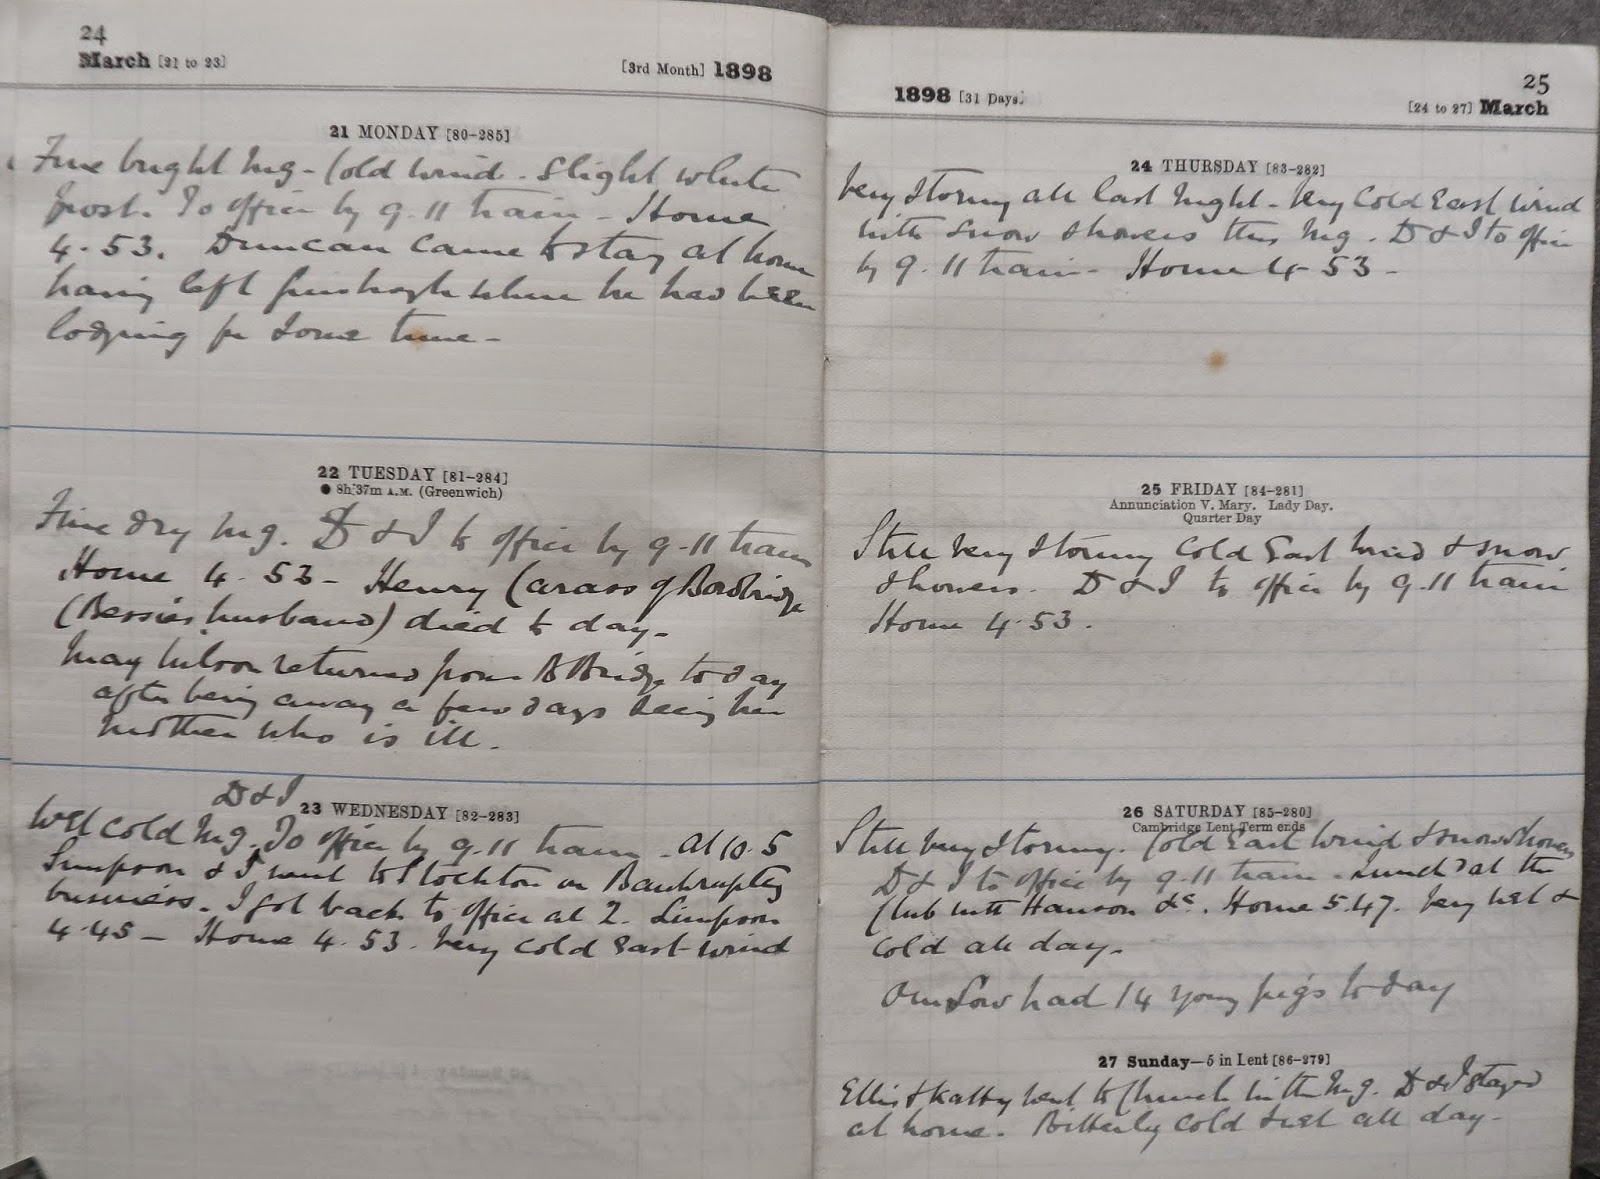 24
March [21 to 23]
[3rd Month] 1898
21 MONDAY [80-285]
Fine bright Mg - Cold wind - Slight white
frost. To office by 9.11 train - Home
4.53. Duncan came to stay at home
having left where he had been
lodging for some time -
22 TUESDAY [81-284]
● 8h.37m A.M. (Greenwich)
Fine dry Mg. D & I to office by 9.11 train
Home 4.53 - Henry Carass of Boxbridge
(Bessies husband) died to day -
May Wilson returned from B Bridge to day
after being away a few days seeing her
mother who is ill.
D & I
23 WEDNESDAY [82-283]
Wet cold Mg. To office by 9.11 train - At 10.5
Simpson & I went to Stockton on Bankruptcy
business. I got back to office at 2. Simpson
4.45 - Home 4.53. Very cold East wind
1898 [31 Days]
25
[24 to 27] March
24 THURSDAY [83-282]
Very stormy all last night - Very cold East wind
with snow showers this Mg. D & I to office
by 9.11 train - Home 4.53 -
25 FRIDAY [84-281]
Annunciation V. Mary. Lady Day.
Quarter Day
Still very stormy cold East wind & snow
showers. D & I to office by 9.11 train
Home 4.53.
26 SATURDAY [85-280]
Cambridge Lent Term ends
Still very stormy. Cold East wind & snow showers
D & I to office by 9.11 train. Lunched at the
Club with Hanson &c. Home 5.47. Very wet &
cold all day.
Our Sow had 14 young pigs to day
27 Sunday—5 in Lent [86-279]
Ellis & Katty went to Church in the Mg. D & I stayed
at home. Bitterly cold & wet all day -